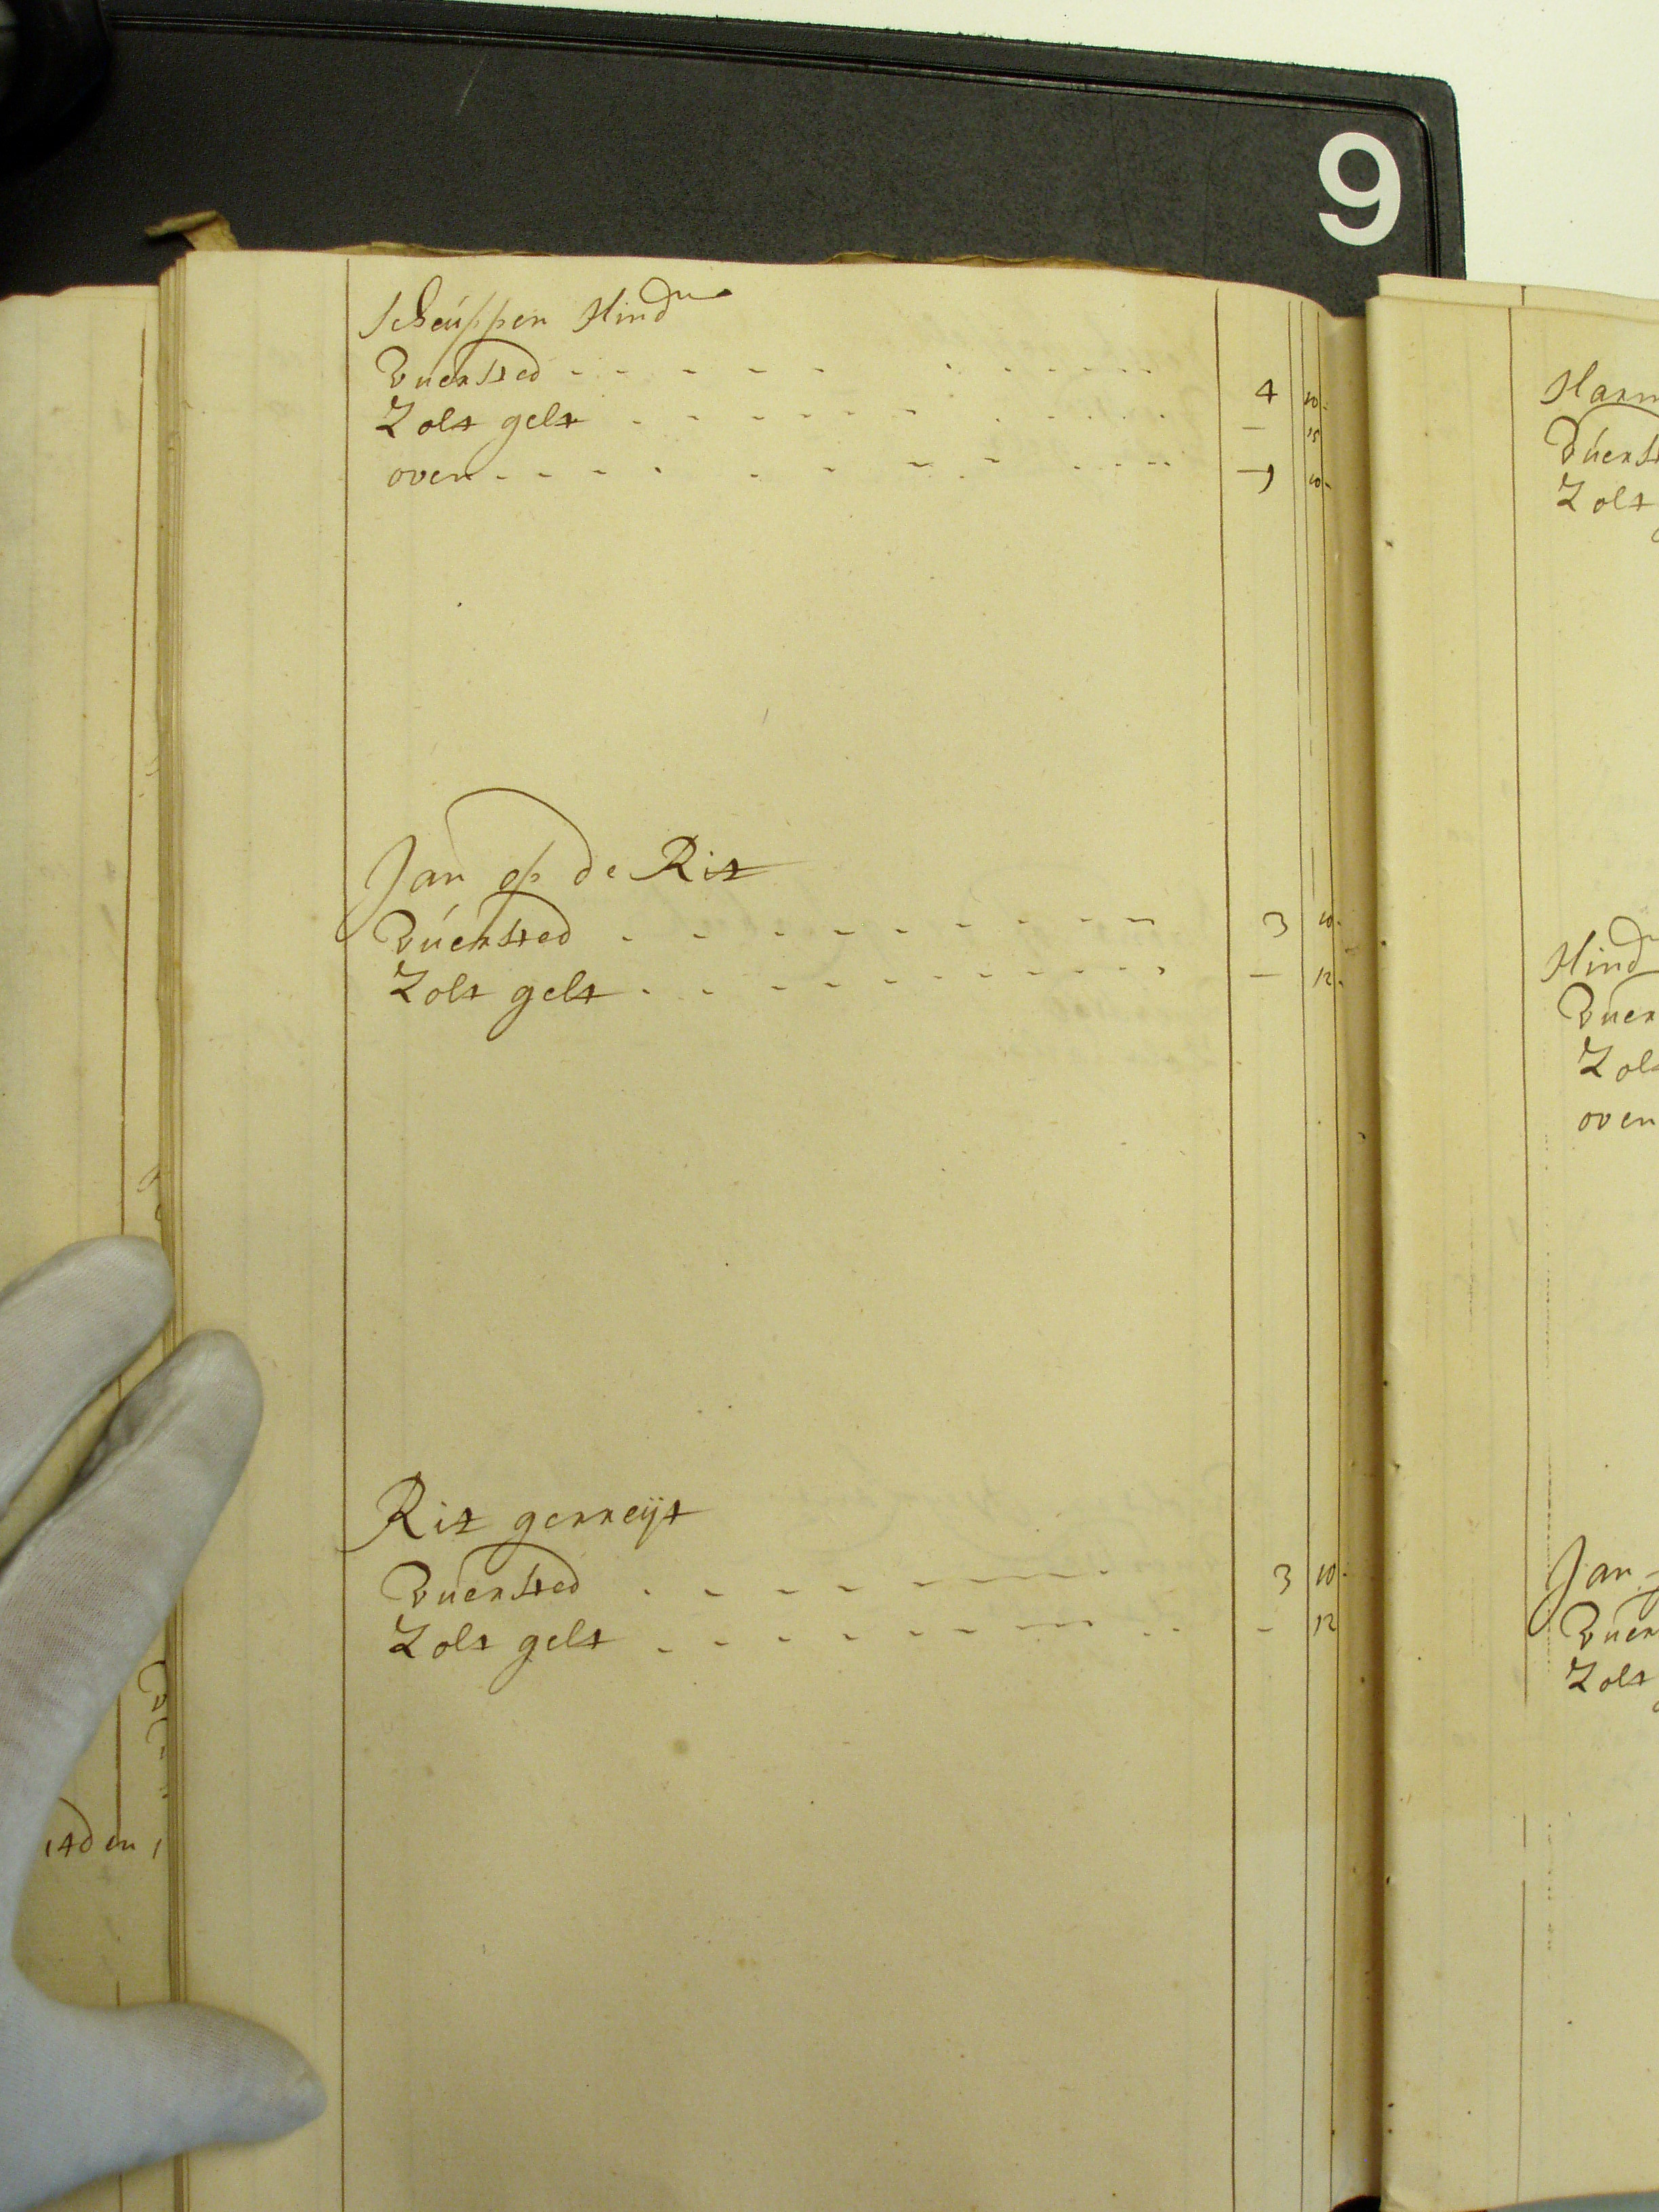 9
Scheúppen Hindr
Vuersted - - - - - - - - - - 4 10-
Zolt gelt - - - - - - - - - - — 15
oven - - - - - - - - - - — 10-
Jan op de Rit
Vúérsted - - - - - - - - - 3 10-
Zolt gelt - - - - - - - - - — 12-
Rit gerreijt
Vuersted - - - - - - - - 3 10-
Zolt gelt - - - - - - - - - 12
Harm
Vúerst
Zolt
Hindr
Vuer
Zol
oven
Jan
Vuer
Zolt